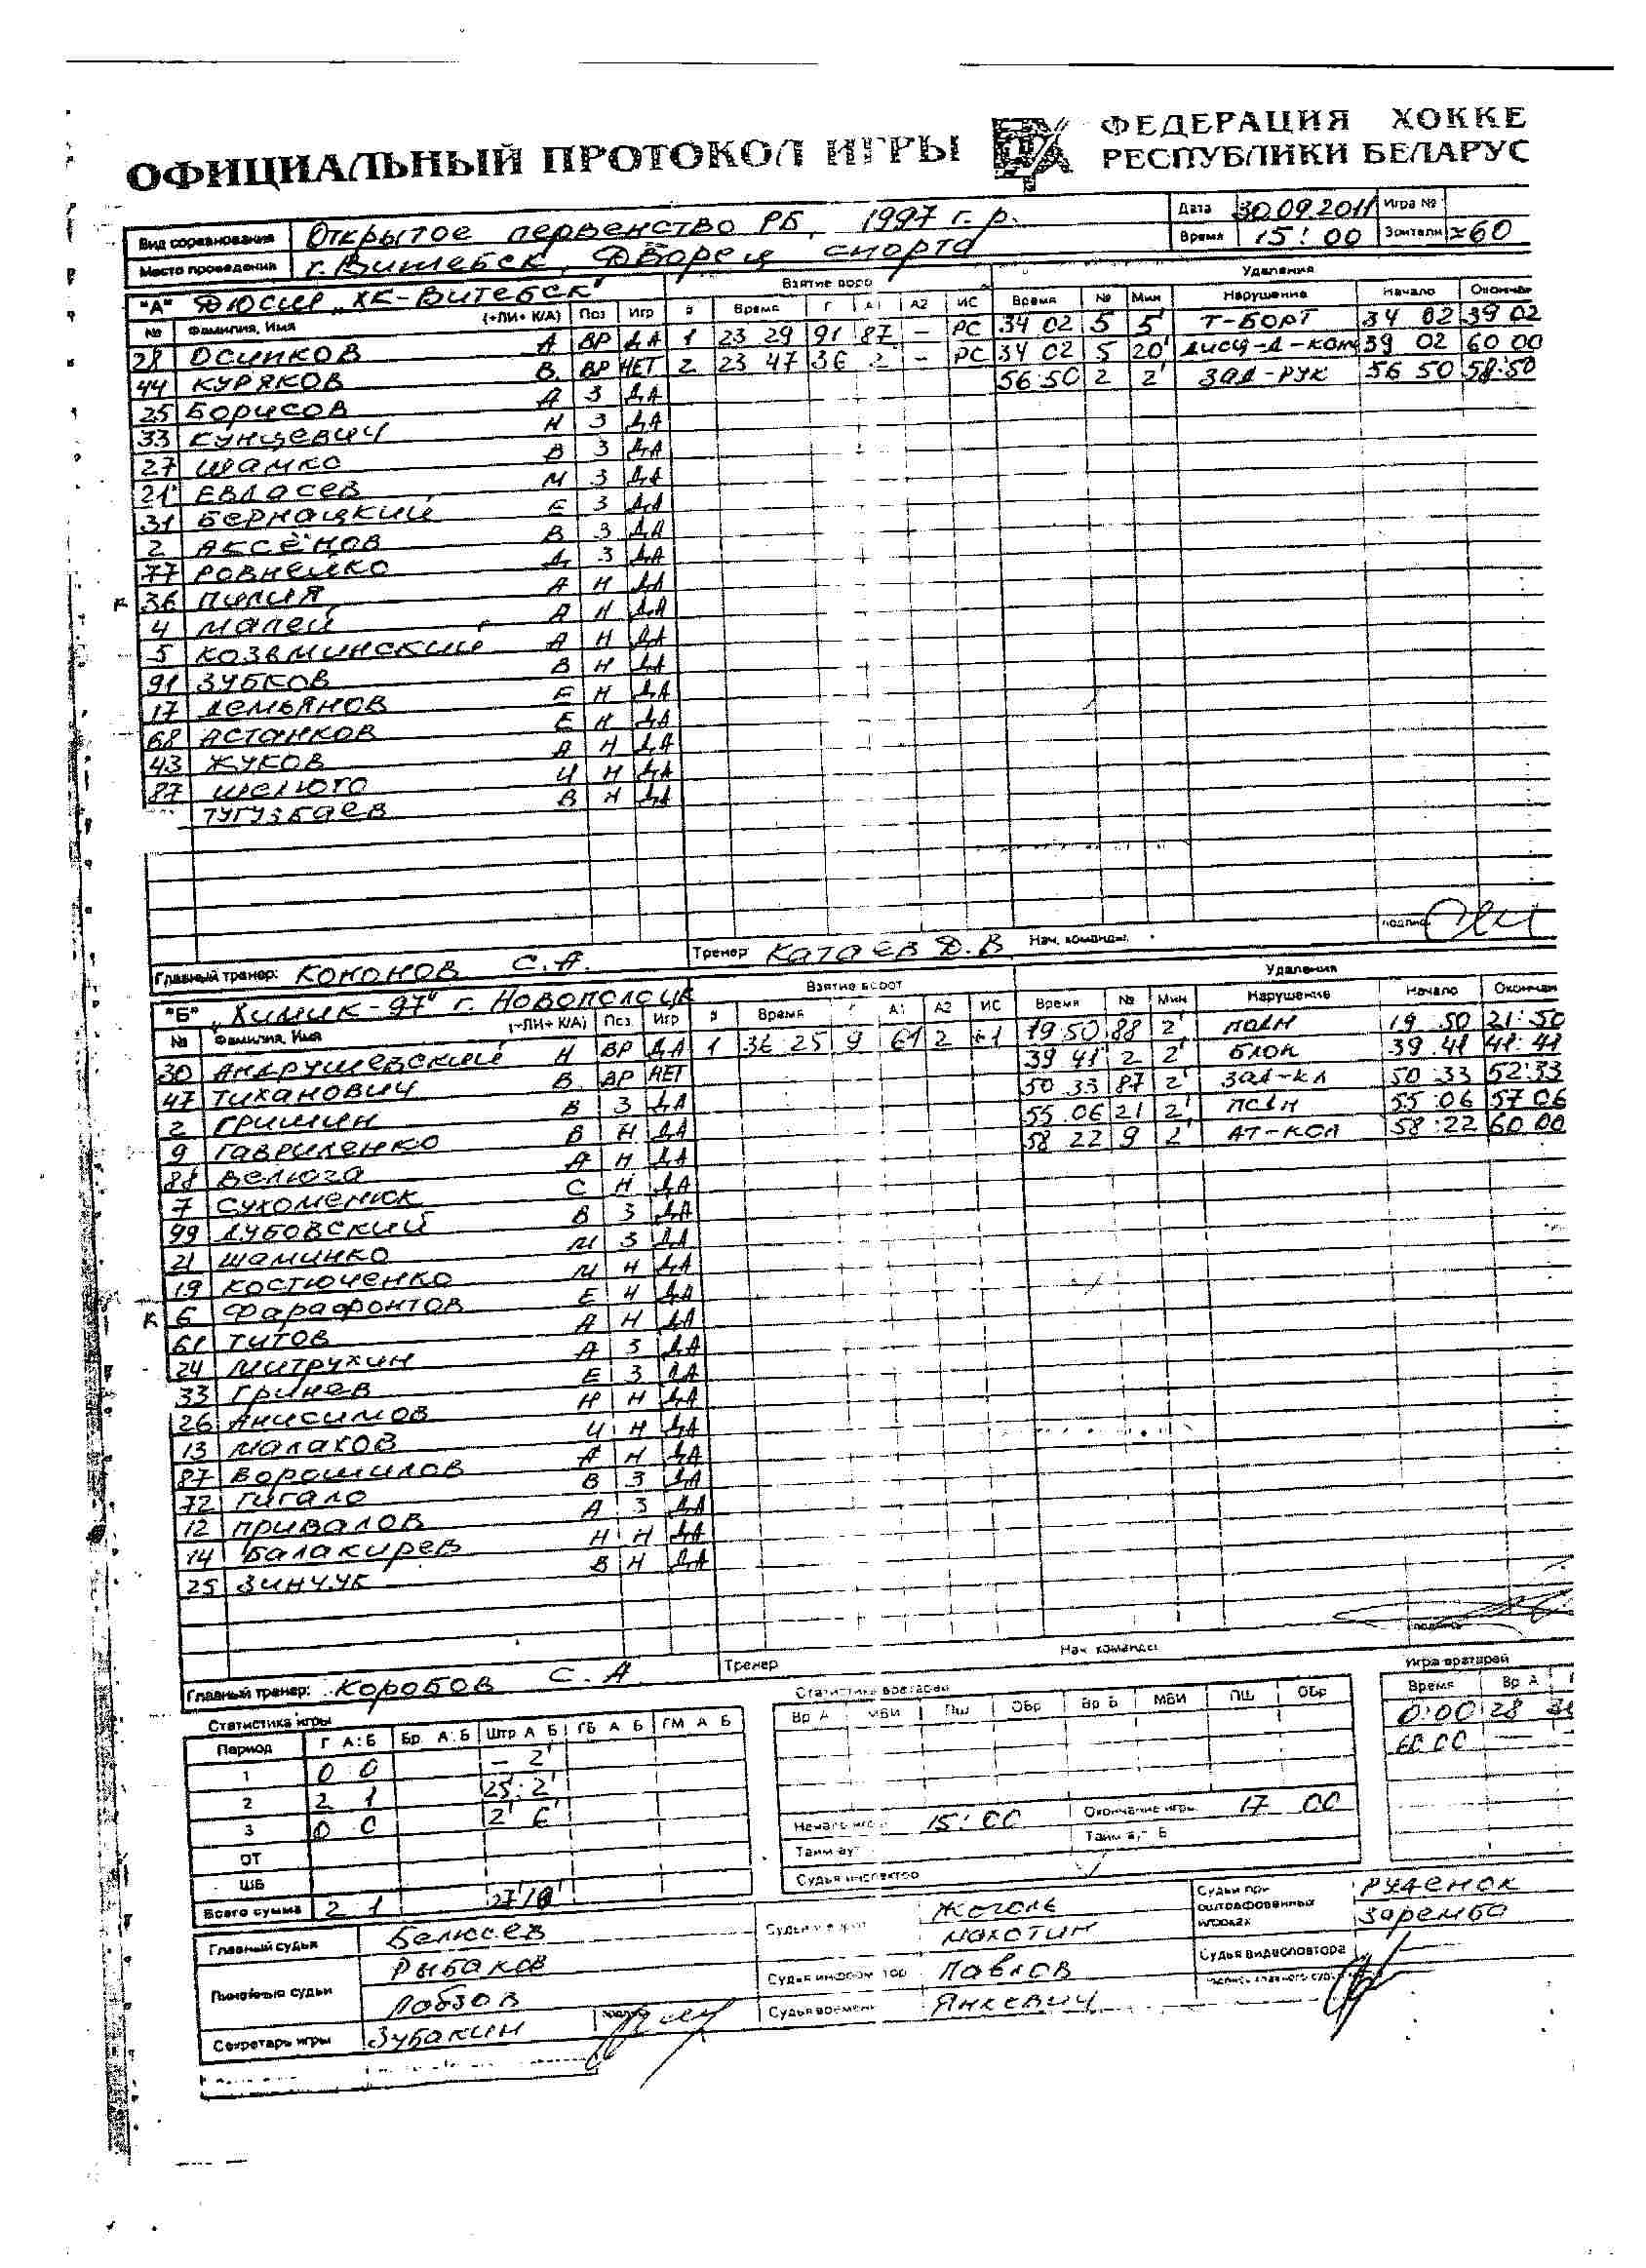 ОФИЦИАЛЬНЫЙ ПРОТОКОЛ ИГРЫ ФЕДЕРАЦИЯ ХОККЕ
РЕСПУБЛИКИ БЕЛАРУС
Вид соревнования Открытое первенство РБ, 1997 г.р. Дата 30.09.2011 Игра №
Место проведения г. Витебск, Дворец спорта Время 15:00 Зрители ≈60
"А" ДЮСШ "ХК-Витебск" Взятие воро Удаления
№ Фамилия, Имя (+ЛИ+ К/А) Поз Игр Время Г А1 А2 ИС Время № Мин Нарушение Начало Окончан
28 ОСИПКОВ А ВР ДА 1 23 29 91 87 - РС 34 02 5 5' Т-БОРТ 34 02 39 02
44 КУРЯКОВ В. ВР НЕТ 2 23 47 36 2 - РС 34 02 5 20' ДИСЦ-Д-КОМ 39 02 60 00
25 БОРИСОВ А З ДА 56 50 2 2' ЗАД-РУК 56 50 58:50
33 КУНЦЕВИЧ Н З ДА
27 ШАМКО В З ДА
21 ЕВДАСЕВ М З ДА
31 БЕРНАЦКИЙ Е З ДА
2 АКСЁНОВ В З ДА
77 РОВНЕЙКО Д З ДА
К 36 ПИЛИЯ А Н ДА
4 МАЛЕЙ А Н ДА
5 КОЗЬМИНСКИЙ А Н ДА
91 ЗУБКОВ В Н ДА
17 ДЕМЬЯНОВ Е Н ДА
68 АСТАНКОВ Е Н ДА
43 ЖУКОВ А Н ДА
87 ШЕЛЮТО И Н ДА
ТУГУЗБАЕВ В Н ДА
Главный тренер: КОНОНОВ С.А. Тренер КАТАЕВ Д.В Нач. команды подпис
"Б" "Химик-97" г. Новополоцк Взятие ворот Удаления
№ Фамилия, Имя (+ЛИ+ К/А) Поз Игр Время Г А1 А2 ИС Время № Мин Нарушение Начало Окончан
30 АНДРУШЕВСКИЙ Н ВР ДА 1 36 25 9 61 2 +1 19 50 88 2' ПОДН 19 50 21:50
47 ТИХАНОВИЧ В ВР НЕТ 39 41 2 2' БЛОК 39 41 41:41
2 ГРИШИН В З ДА 50 33 87 2' ЗАД-КЛ 50 33 52:33
9 ГАВРИЛЕНКО В Н ДА 55 06 21 2' ПОДН 55 06 57 06
88 ВЕЛЮГА А Н ДА 58 22 9 2' АТ-КОЛ 58:22 60 00
7 СУХОМЕНЮК С Н ДА
99 ДУБОВСКИЙ В З ДА
21 ШАМИНКО М З ДА
19 КОСТЮЧЕНКО М Н ДА
К 6 ФАРАФОНТОВ Е Н ДА
61 ТИТОВ А Н ДА
24 МИТРУХИН А З ДА
33 ГРИНЕВ Е З ДА
26 АНИСИМОВ Н Н ДА
13 МАЛАХОВ И Н ДА
87 ВОРОШИЛОВ А Н ДА
72 ГИГАЛО В З ДА
12 ПРИВАЛОВ А З ДА
14 БАЛАКИРЕВ Н Н ДА
25 ЗИНЧУК В Н ДА
Главный тренер: КОРОБОВ С.А Тренер Нач. команды подпись
Статистика игры Статистика вратарей Игра вратарей
Период Г А:Б Бр. А:Б Штр А Б ГБ А Б ГМ А Б Вр А МВИ ПШ ОБр Вр Б МВИ ПШ ОБр Время Вр А
1 0 0 - 2' 0:00 28 30
2 2 1 25:2' 60 00
3 0 0 2' 6' Начало игры 15:00 Окончание игры 17 00
ОТ Тайм аут Тайм аут Б
ШБ Судья инспектор
Всего сумма 2 1 27'/10'
Главный судья Белюсев Судьи Жоголь Судьи при оштрафованных игроках РУДЕНОК
Махотин Заремба
Линейные судьи Рыбаков Судья информатор Павлов Судья видеоповтора
Лобзов Судья времени Янкевич подпись главного судьи
Секретарь игры Зубакин